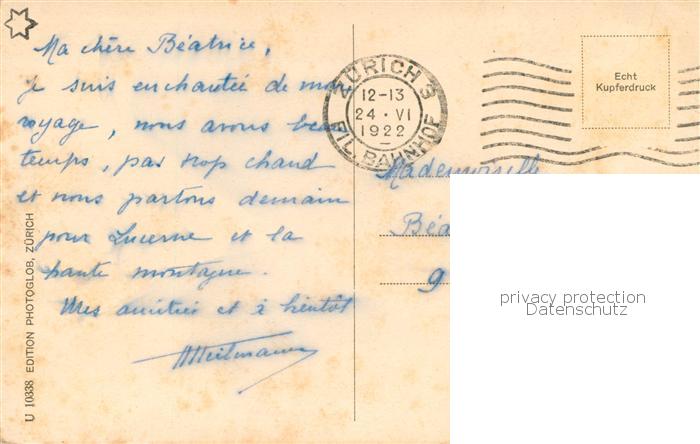 Ma chère Béatrice,
je suis enchantée de mon
voyage, nous avons beau
temps, pas trop chaud
et nous partons demain
pour Lucerne et la
haute montagne.
Mes amitiés et à bientôt
ZÜRICH 3
12-13
24 · VI
1922
FIL. BAHNHOF
Echt
Kupferdruck
Mademoiselle
Béa
9
privacy protection
Datenschutz
U 10338 EDITION PHOTOGLOB, ZÜRICH